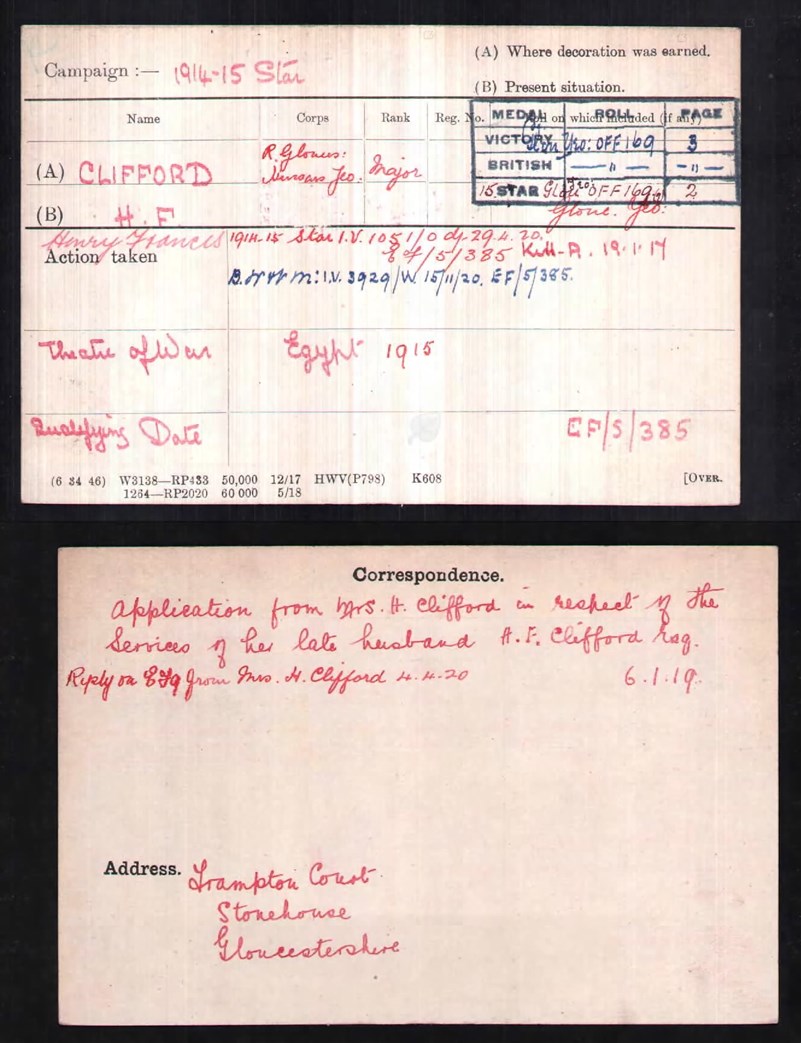 (A) Where decoration was earned.
Campaign :— 1914-15 Star
(B) Present situation.
Name Corps Rank Reg. No. Roll on which included (if any)
MEDAL ROLL PAGE
VICTORY Yeo: OFF 169 3
BRITISH —„— -„-
15 STAR OFF 169 2
(A) CLIFFORD R. Glouc: Hussars Yeo. Major
(B) H. F Glouc. Yeo.
Henry Francis 1914-15 Star I.V. 1051/0 dj. 29.4.20.
Action taken EF/5/385 Kill-A. 19.1.17
B.W & V M: I.V. 3929/W. 15/11/20. EF/5/385.
Theatre of War Egypt 1915
Qualifying Date EF/5/385
(6 34 46) W3138—RP433 50,000 12/17 HWV(P798) K608 [OVER.
1264—RP2020 60 000 5/18
Correspondence.
Application from Mrs. H. Clifford in respect of the
Services of her late husband H. F. Clifford Esq.
Reply on from Mrs. H. Clifford 4.4.20 6.1.19.
Address. Frampton Court
Stonehouse
Gloucestershire